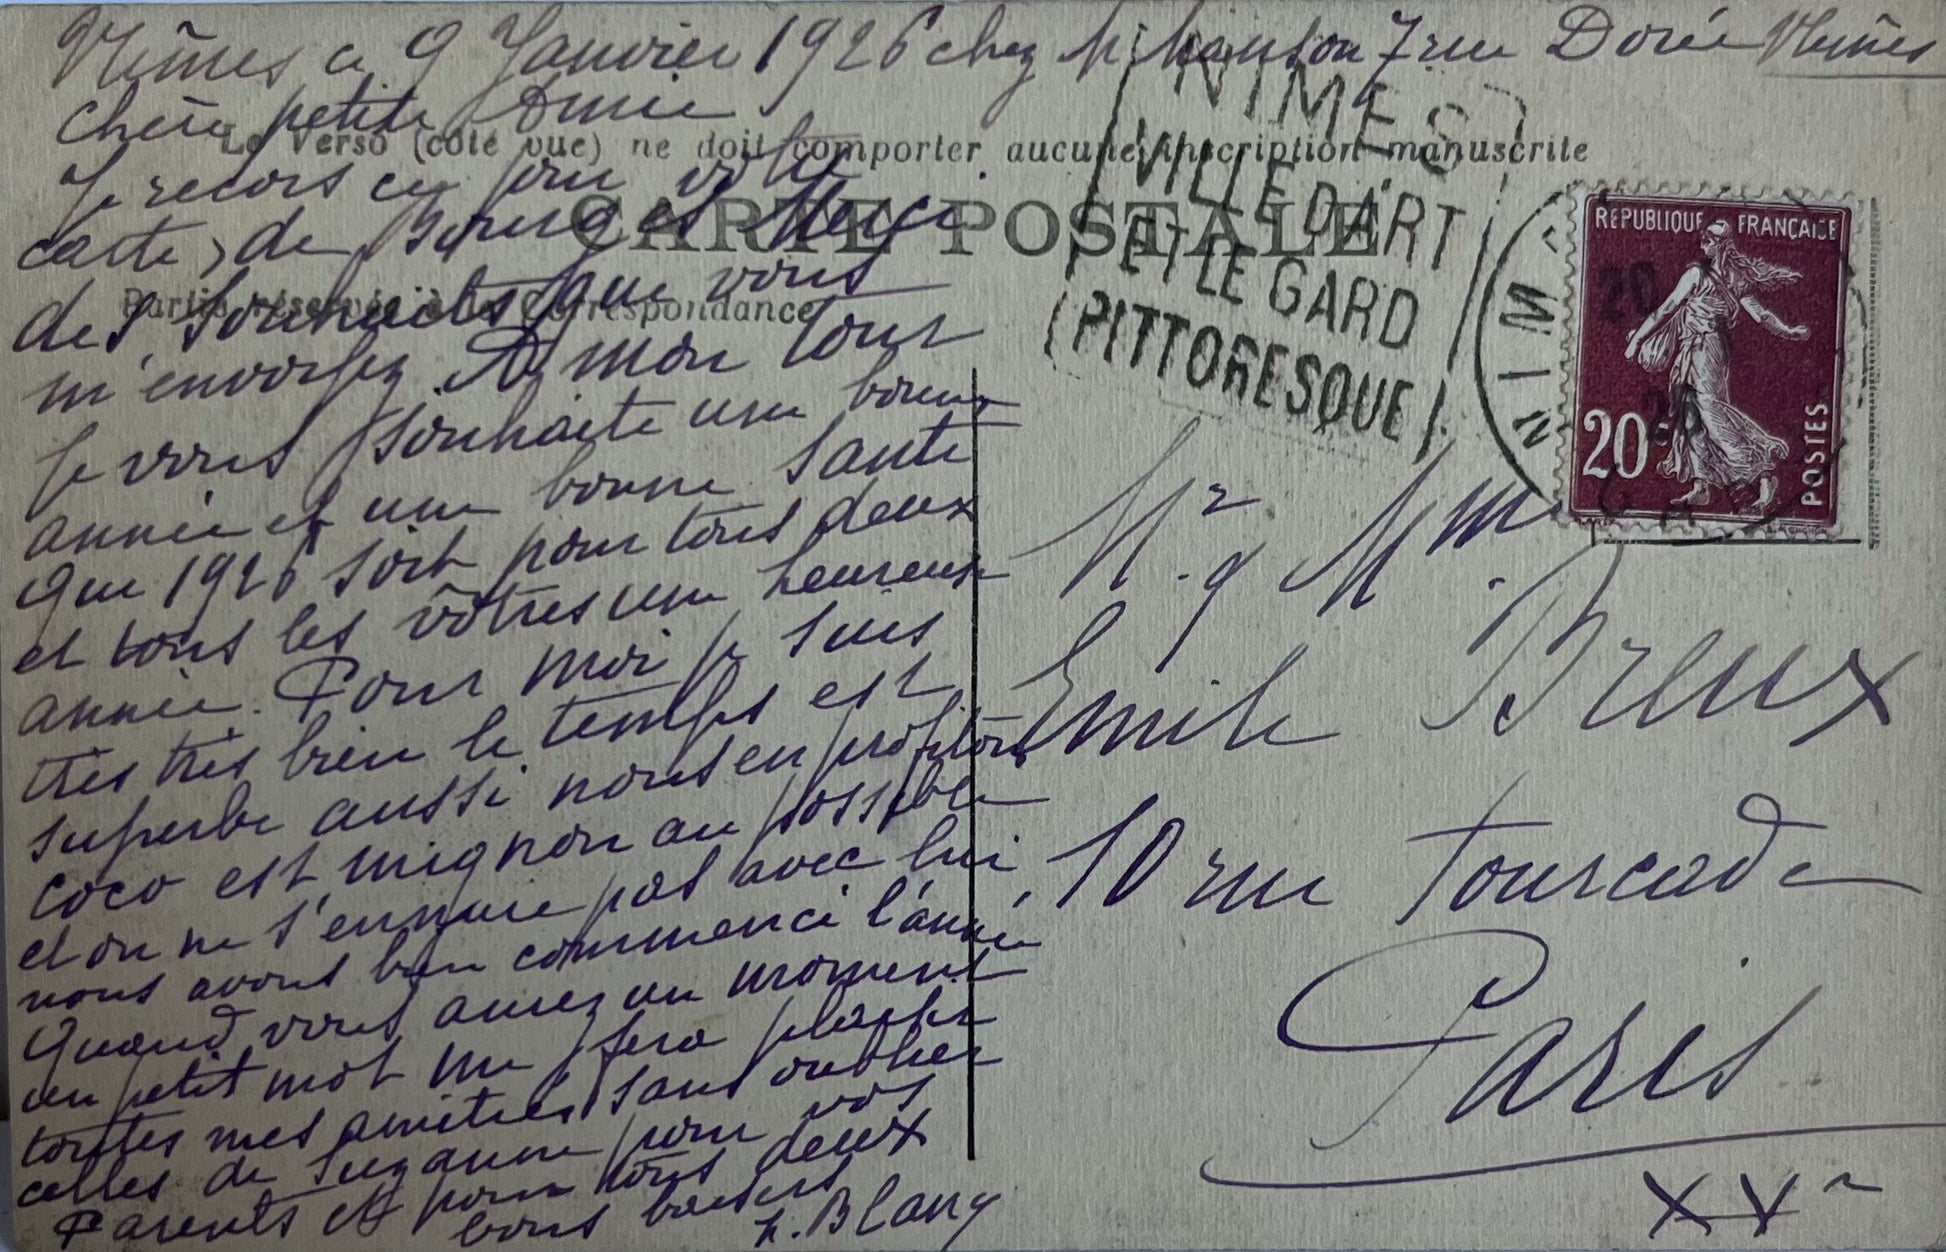 Nîmes ce 9 Janvier 1926 chez M. 7 rue Dorée Nîmes
Chère petite Amie
Le Verso (côté vue) ne doit comporter aucune inscription manuscrite
CARTE POSTALE
Partie réservée à la Correspondance
Je recois ce jour votre
carte, de Bourges Merci
des souhaits que vous
m'envoyez. A mon tour
je vous souhaite une bonne
année et une bonne santé
que 1926 soit pour tous deux
et tous les vôtres une heureuse
année. Pour moi je suis
très très bien le temps est
superbe aussi nous en profitons
coco est mignon au possible
et on ne s'ennuie pas avec lui
nous avons bien commencé l'année
Quand vous aurez un moment
un petit mot me fera plaisir
toutes mes amitiés sans oublier
celles de Suzanne pour vos
Parents et pour tous deux
bons baisers
L. Blanc
NIMES
VILLE D'ART
ET LE GARD
PITTORESQUE
NIM
REPUBLIQUE FRANÇAISE
20
26
20c
POSTES
Mr. & Mme.
Emile Breux
10 rue Fourcade
Paris
XVe